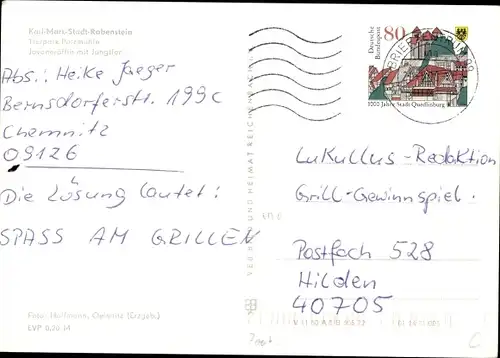 Karl-Marx-Stadt-Rabenstein
Tierpark Pelzmühle
mit Jungtier
Abs.: Heike Jaeger
Bernsdorferstr. 199c
Chemnitz
09126
Die Lösung lautet:
SPASS AM GRILLEN
Foto: Hoffmann, Oelsnitz (Erzgeb.)
EVP 0,20 M
VERLAG BILD UND HEIMAT REICHENBACH
Deutsche
Bundespost
80
1000 Jahre Stadt Quedlinburg
BRIEFZENTRUM 09
Lukullus-Redaktion
Grill-Gewinnspiel
Postfach 528
Hilden
40705